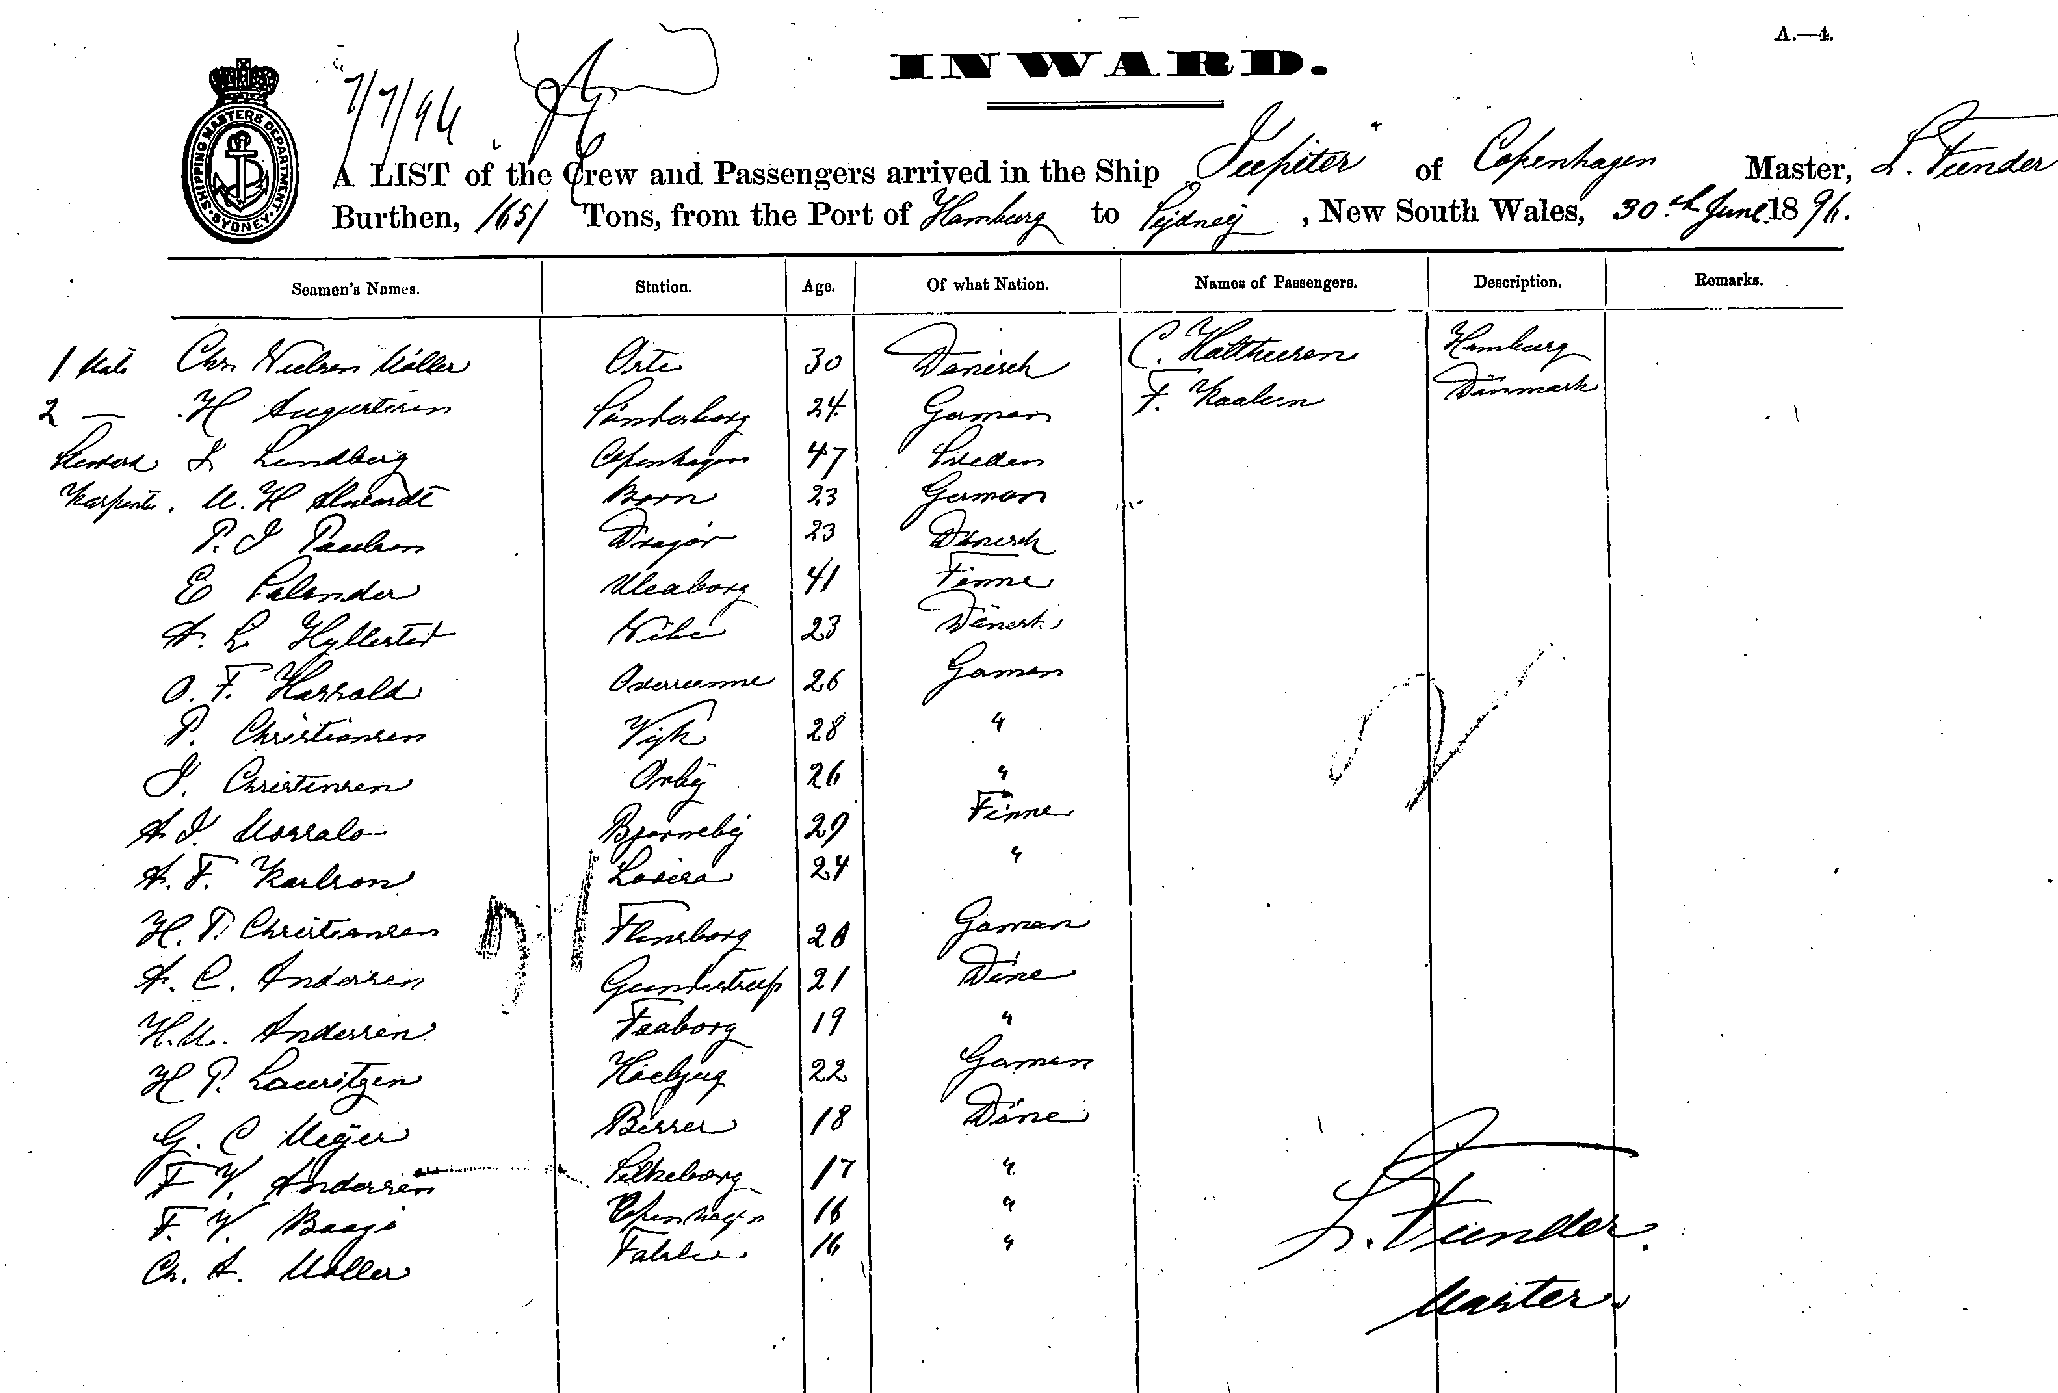 A.—4.
INWARD.
7/7/96
SHIPPING MASTERS DEPARTMENT SYDNEY
A LIST of the Crew and Passengers arrived in the Ship "Jupiter" of Copenhagen Master, L. Funder
Burthen, 1651 Tons, from the Port of Hamburg to Sydney, New South Wales, 30th June 1896.
Seamen's Names. Station. Age. Of what Nation. Names of Passengers. Description. Remarks.
1 Mate Chr. Nielsen Möller 30 Dänisch C. Hamburg
2 — H Augustisen Sonderborg 24 German F. Dänmark
J Lundberg Copenhagen 47 Sweden
M. H Born 23 German
P. J Paulsen Dragör 23 Dänisch
E Salender Uleaborg 41 Finne
A. L Hyllested Nibe 23 Dänish
O. F. Harrald 26 German
P. Christiansen Wyk 28 "
J. Christensen 26 "
A. J. Björneby 29 Finne
A. F. Karlson Lovisa 24 "
H. P. Christiansen Flensborg 28 German
A. C. Andersen Gunderstrup 21 Däne
H. M. Andersen Faaborg 19 "
H P. Lauritzen 22 German
G. C Meyer 18 Däne
F V. Andersen Silkeborg 17 "
F. V. Baage Copenhagen 16 "
Ch. A. Möller 16 "
L. Funder.
Master.